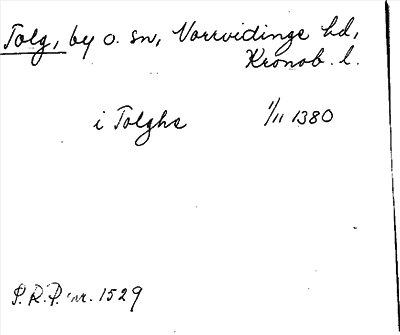 Tolg, by o. sn, Norrvidinge hd,
Kronob. l.
i Tolghe 1/11 1380
S.R.P. nr. 1529